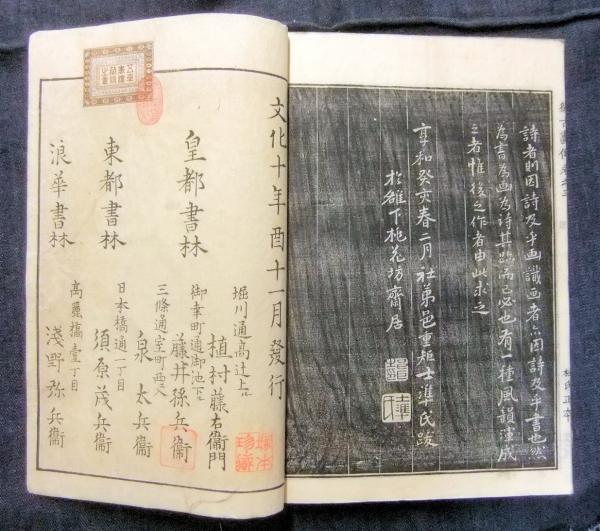 詩者則因詩及乎画識画者亦因詩及乎書也然
為書為画為詩其臨而已必也有一種風韻渾成
之者惟後之作者由此求之
享和癸亥春二月社弟邑重矩士準氏跋
於雄下桃花坊齋居
文化十年酉十一月發行
皇都書林
堀川通高辻上ル
植村藤右衞門
御幸町通御池下ル
藤井孫兵衞
三條通室町西入
泉太兵衞
東都書林
日本橋通一丁目
須原茂兵衞
浪華書林
高麗橋壹丁目
淺野弥兵衞